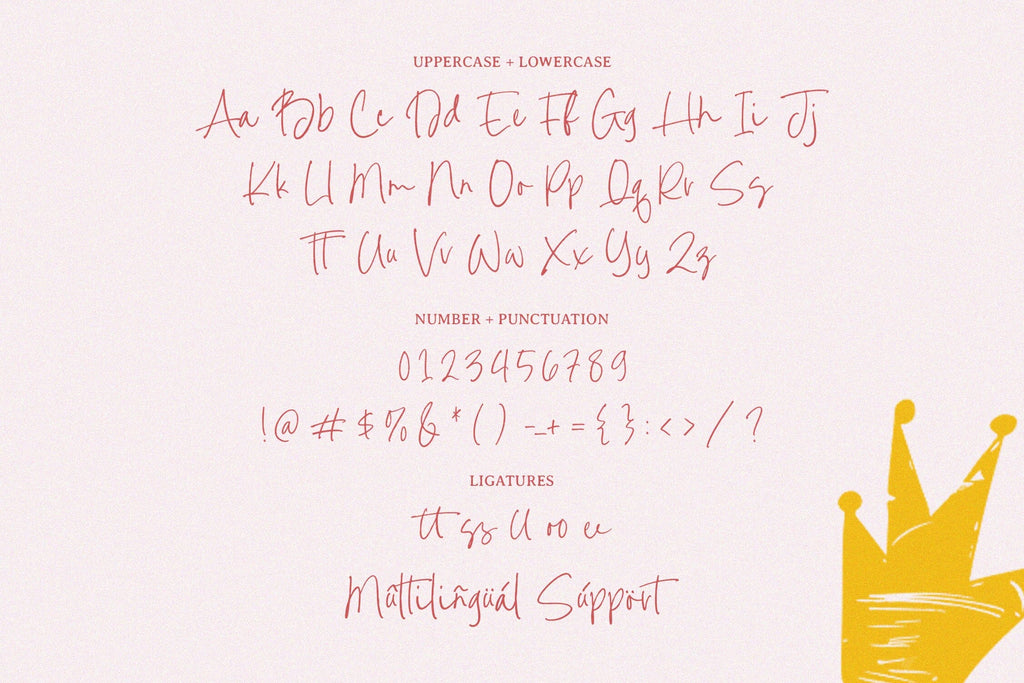 UPPERCASE + LOWERCASE
Aa Bb Cc Dd Ee Ff Gg Hh Ii Jj
Kk Ll Mm Nn Oo Pp Qq Rr Ss
Tt Uu Vv Ww Xx Yy Zz
NUMBER + PUNCTUATION
0123456789
!@#$%&*()-_+={}:<>/?
LIGATURES
tt ss ll oo ee
Mûltiliñgüál Súppört